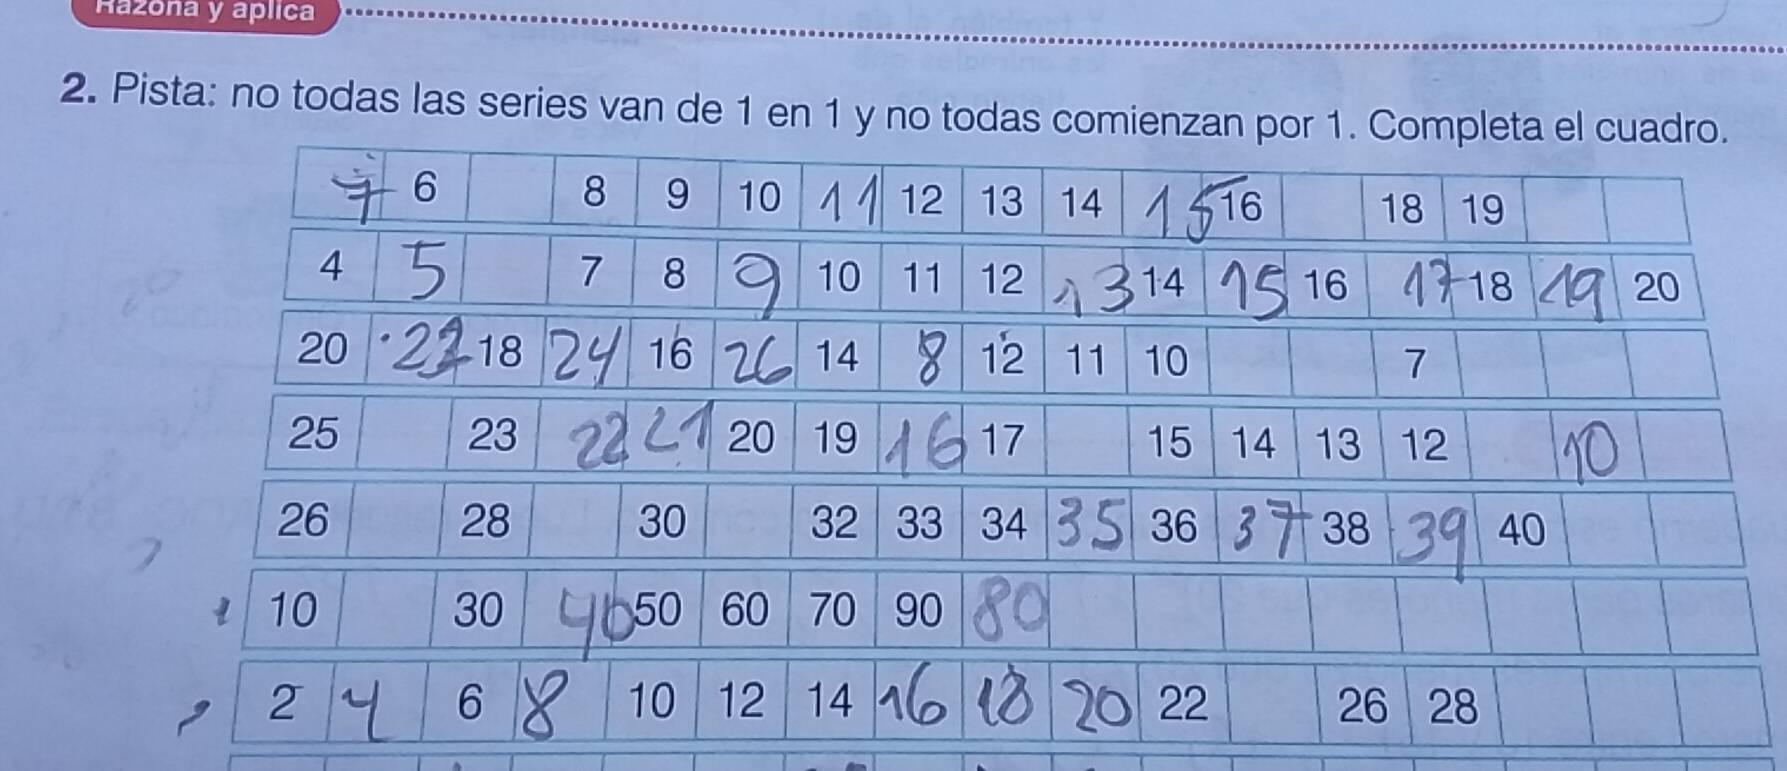 Razona y aplica
2. Pista: no todas las series van de 1 en 1 y no todas comienzan por 1. Completa el cuadro.
7 6 8 9 10 11 12 13 14 15 16 18 19
4 5 7 8 9 10 11 12 13 14 15 16 17 18 19 20
20 18 24 16 26 14 8 12 11 10 7
25 23 22 21 20 19 16 17 15 14 13 12 10
26 28 30 32 33 34 35 36 37 38 39 40
10 30 40 50 60 70 90 80
2 4 6 8 10 12 14 16 18 20 22 26 28